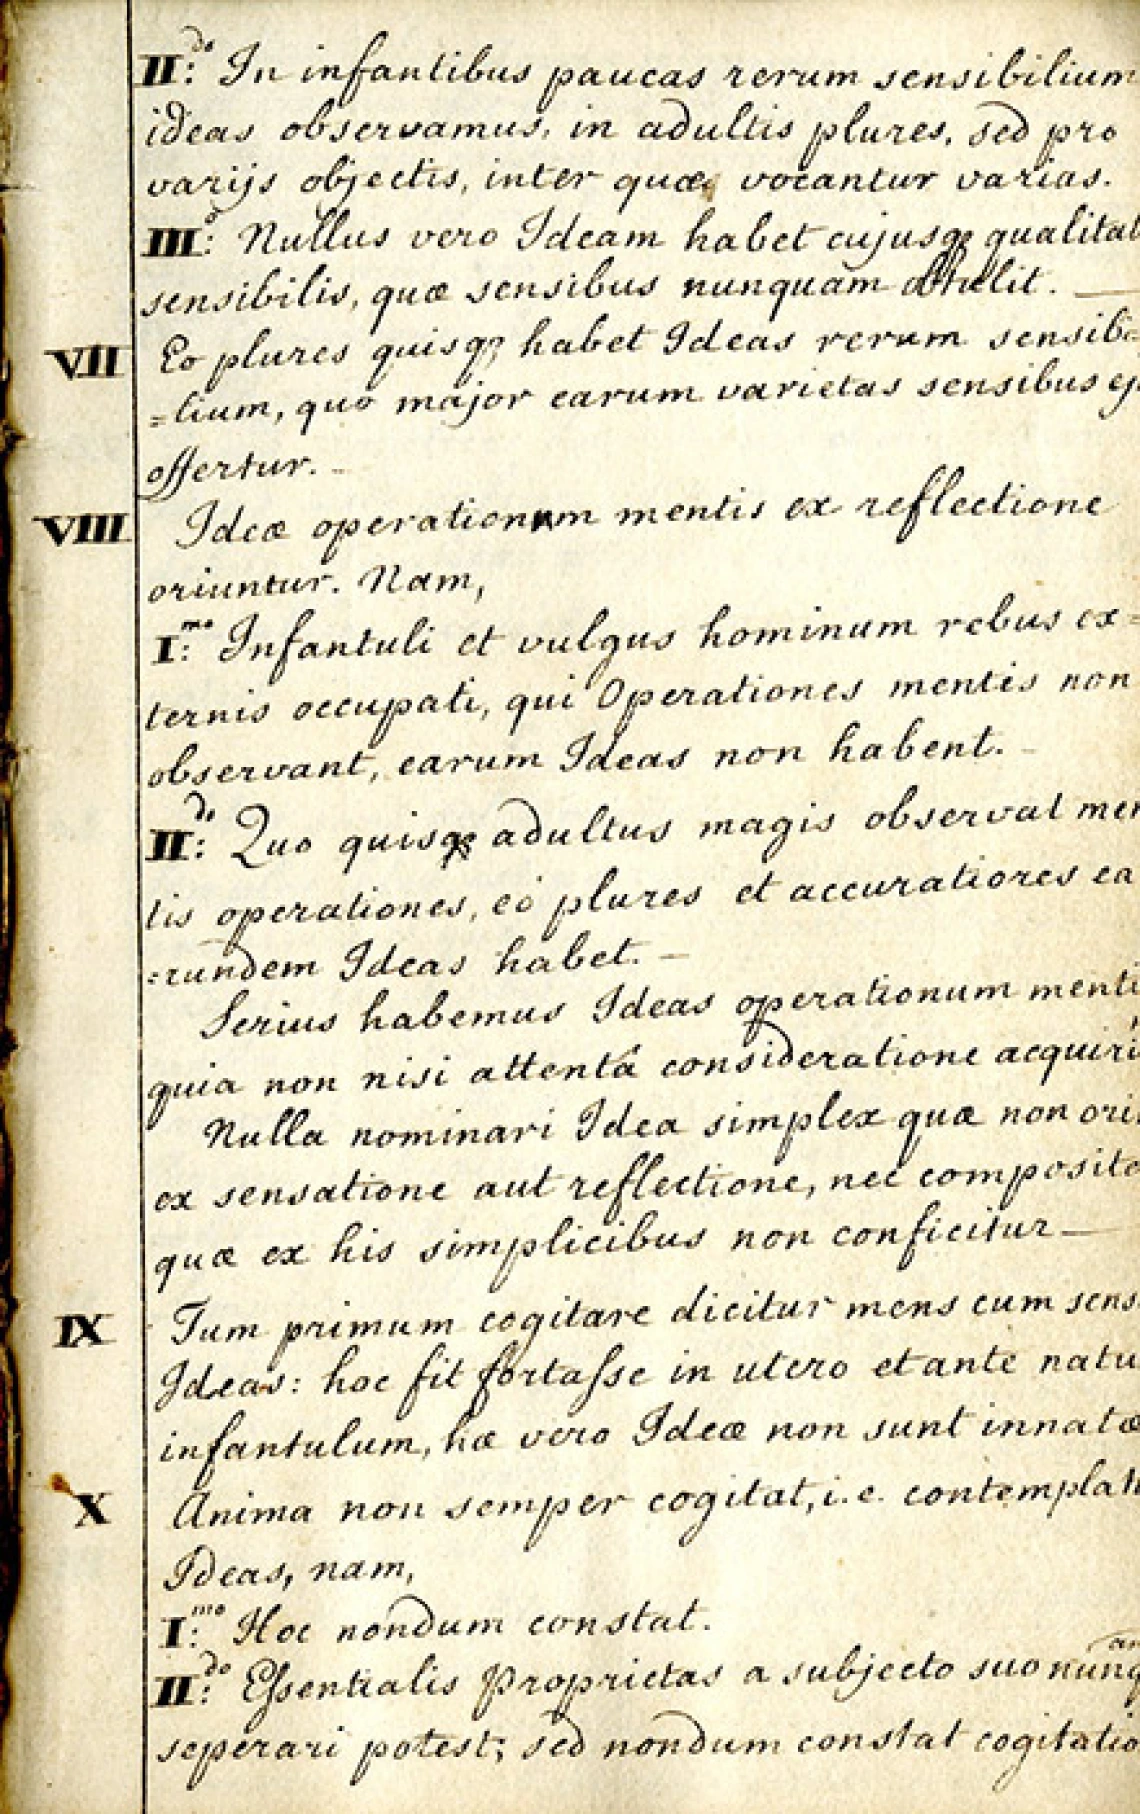 II:do In infantibus paucas rerum sensibilium
ideas observamus, in adultis plures, sed pro
varijs objectis, inter quæ vocantur varias.
III:o Nullus vero Ideam habet cujusqe qualitat
sensibilis, quæ sensibus nunquam
VII Eo plures quisqe habet Ideas rerum sensibi=
=lium, quo major earum varietas sensibus ej
offertur.
VIII Ideæ operationum mentis ex reflectione
oriuntur. Nam,
I:mo Infantuli et vulgus hominum rebus ex=
ternis occupati, qui Operationes mentis non
observant, earum Ideas non habent.
II:do Quo quisqe adultus magis observat men
tis operationes, eó plures et accuratiores ea
=rundem Ideas habet.
Serius habemus Ideas operationum menti
quia non nisi attentâ consideratione acquiri
Nulla nominari Idea simplex quæ non ori
ex sensatione aut reflectione, nec composita
quæ ex his simplicibus non conficitur
IX Tum primum cogitare dicitur mens cum sens
Ideas: hoc fit fortaſse in utero et ante natu
infantulum, hæ vero Ideæ non sunt innatæ
X Anima non semper cogitat, i.e. contemplat
Ideas, nam,
I:mo Hoc nondum constat.
II:do Eſsentialis Proprietas a subjecto suo nunq
seperari potest; sed nondum constat cogitatio